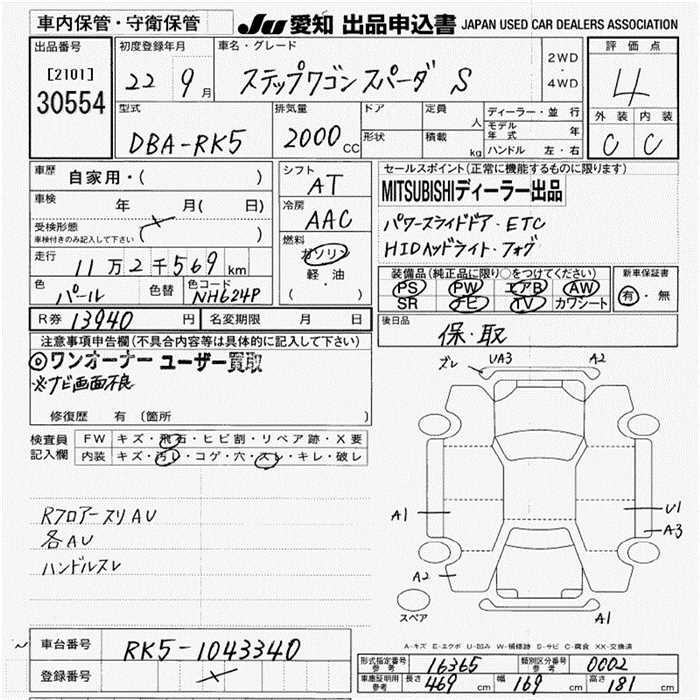 車内保管・守衛保管 JU 愛知 出品申込書 JAPAN USED CAR DEALERS ASSOCIATION
出品番号 [2101] 30554
初度登録年月 22年 9月
車名・グレード ステップワゴン スパーダ S
2WD・4WD
評価点 4
外装 内装
C C
型式 DBA-RK5
排気量 2000cc
ドア 形状
定員 人
積載 kg
ディーラー・並行
モデル年式 年
ハンドル 左・右
車歴 自家用・( )
車検 年 月( 日)
受検形態 ( )
車検付きのみ記入して下さい
走行 11万2千569km
色 パール 色替 色コード NH624P
シフト AT
冷房 AAC
燃料 ガソリン
軽・油
( )
セールスポイント(正常に機能するものに限ります)
MITSUBISHIディーラー出品
パワースライドドア・ETC
HIDヘッドライト・フォグ
装備品(純正品に限り○をつけてください)
PS PW エアB AW
SR ナビ TV カワシート
新車保証書
有・無
R券 13940円 名変期限 月 日
後日品 保・取
注意事項申告欄(不具合内容等は具体的に記入して下さい)
◎ワンオーナー ユーザー買取
※ナビ画面不良
修復歴 有 (箇所 )
検査員記入欄
FW キズ・飛石・ヒビ割・リペア跡・X要
内装 キズ・汚レ・コゲ・穴・スレ・キレ・破レ
Rフロアースリ AU
各AU
ハンドルスレ
ズレ UA3 A2
A1 U1
A3
A2
スペア A1
A-キズ E-エクボ U-凹み W-補修跡 S-サビ C-腐食 XX-交換済
車台番号 RK5-1043340
登録番号
形式指定番号 参考 16365 類別区分番号 参考 0002
車庫証明用 参考 長さ 469cm 幅 169cm 高さ 181cm